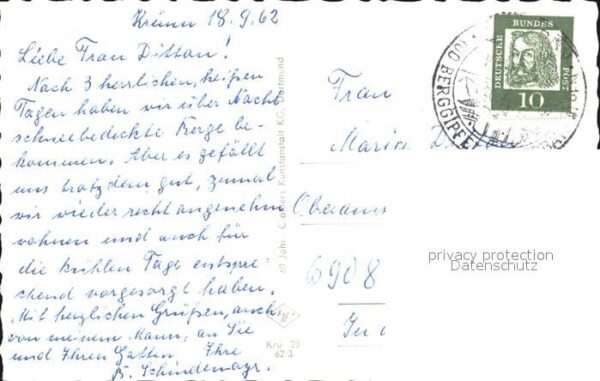 Krünn 18.9.62
Liebe Frau Dittan!
Nach 3 herrlichen, heißen
Tagen haben wir über Nacht
schneebedeckte Berge be-
kommen. Aber es gefällt
uns trotzdem gut, zumal
wir wieder recht angenehm
wohnen und auch für
die kühlen Tage entspre-
chend vorgesorgt haben.
Mit herzlichen Grüßen, auch
von meinem Mann, an Sie
und Ihren Gatten Ihre
B. Schindemayr.
60 Jahre Cramers Kunstanstalt KG. Dortmund
Krü 23
62 3
DEUTSCHE
BUNDES
POST
10
100 BERGGIPFEL
Frau
Maria
Oberam
6908
privacy protection
Datenschutz